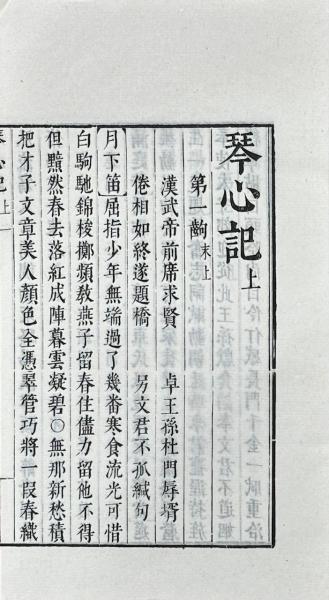 琴心記上
第一齣 末上
漢武帝前席求賢 卓王孫杜門辱壻
倦相如終遂題橋 另文君不孤緘句
月下笛屈指少年無端過了幾番寒食流光可惜
白駒馳錦梭擲頻教燕子留春住儘力留他不得
但黯然春去落紅成陣暮雲凝碧○無那新愁積
把才子文章美人顏色全憑翠管巧將一段春織
琴心記上